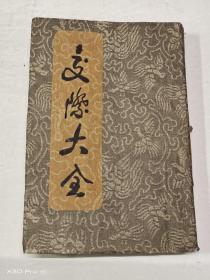 交際大全